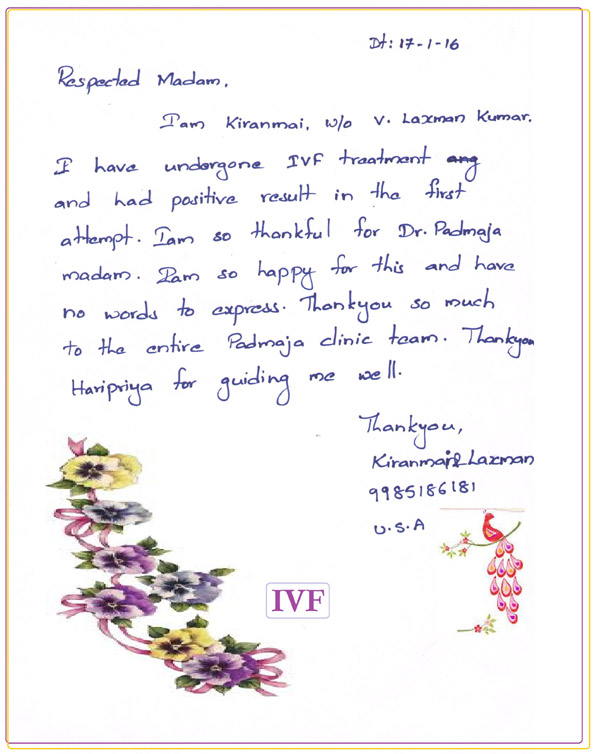 Dt: 17-1-16
Respected Madam,
I am Kiranmai, w/o V. Laxman Kumar.
I have undergone IVF treatment
and had positive result in the first
attempt. I am so thankful for Dr. Padmaja
madam. I am so happy for this and have
no words to express. Thankyou so much
to the entire Padmaja clinic team. Thankyou
Haripriya for guiding me well.
Thankyou,
Kiranmai & Laxman
9985186181
U.S.A
IVF